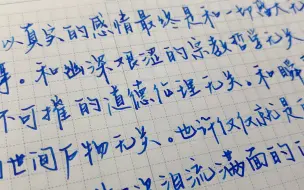 以真实的感情最终是和一切
事。和幽深艰涩的宗教哲学无关
不可摧的道德伦理无关。和
世间万物无关。也许仅仅就是
泪流满面的